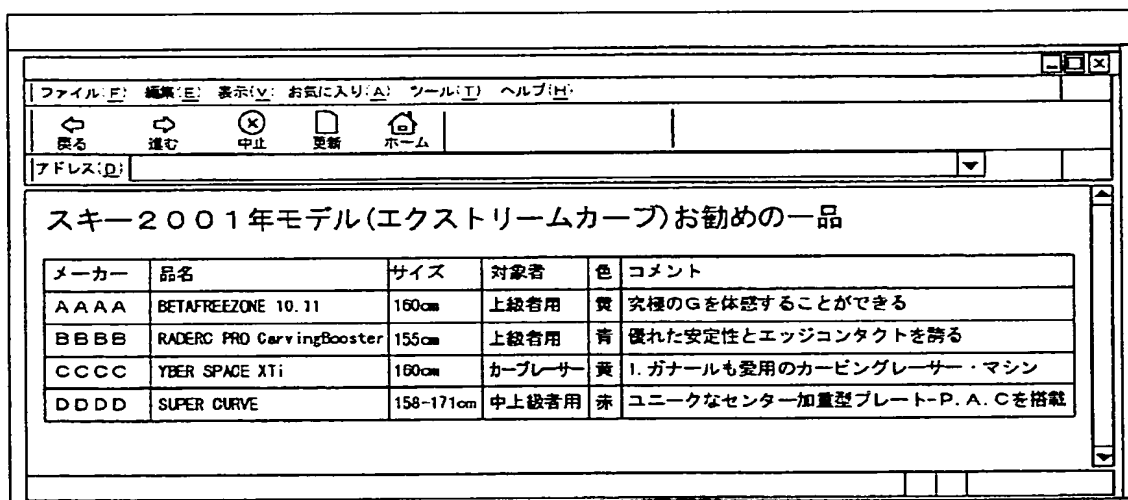 ファイル(F) 編集(E) 表示(V) お気に入り(A) ツール(T) ヘルプ(H)
戻る 進む 中止 更新 ホーム
アドレス(D)
スキー2001年モデル(エクストリームカーブ)お勧めの一品
メーカー 品名 サイズ 対象者 色 コメント
AAAA BETAFREEZONE 10.11 160cm 上級者用 黄 究極のGを体感することができる
BBBB RADERC PRO CarvingBooster 155cm 上級者用 青 優れた安定性とエッジコンタクトを誇る
CCCC YBER SPACE XTi 160cm カーブレーサー 黄 1.ガナールも愛用のカービングレーサー・マシン
DDDD SUPER CURVE 158-171cm 中上級者用 赤 ユニークなセンター加重型プレート-P.A.Cを搭載